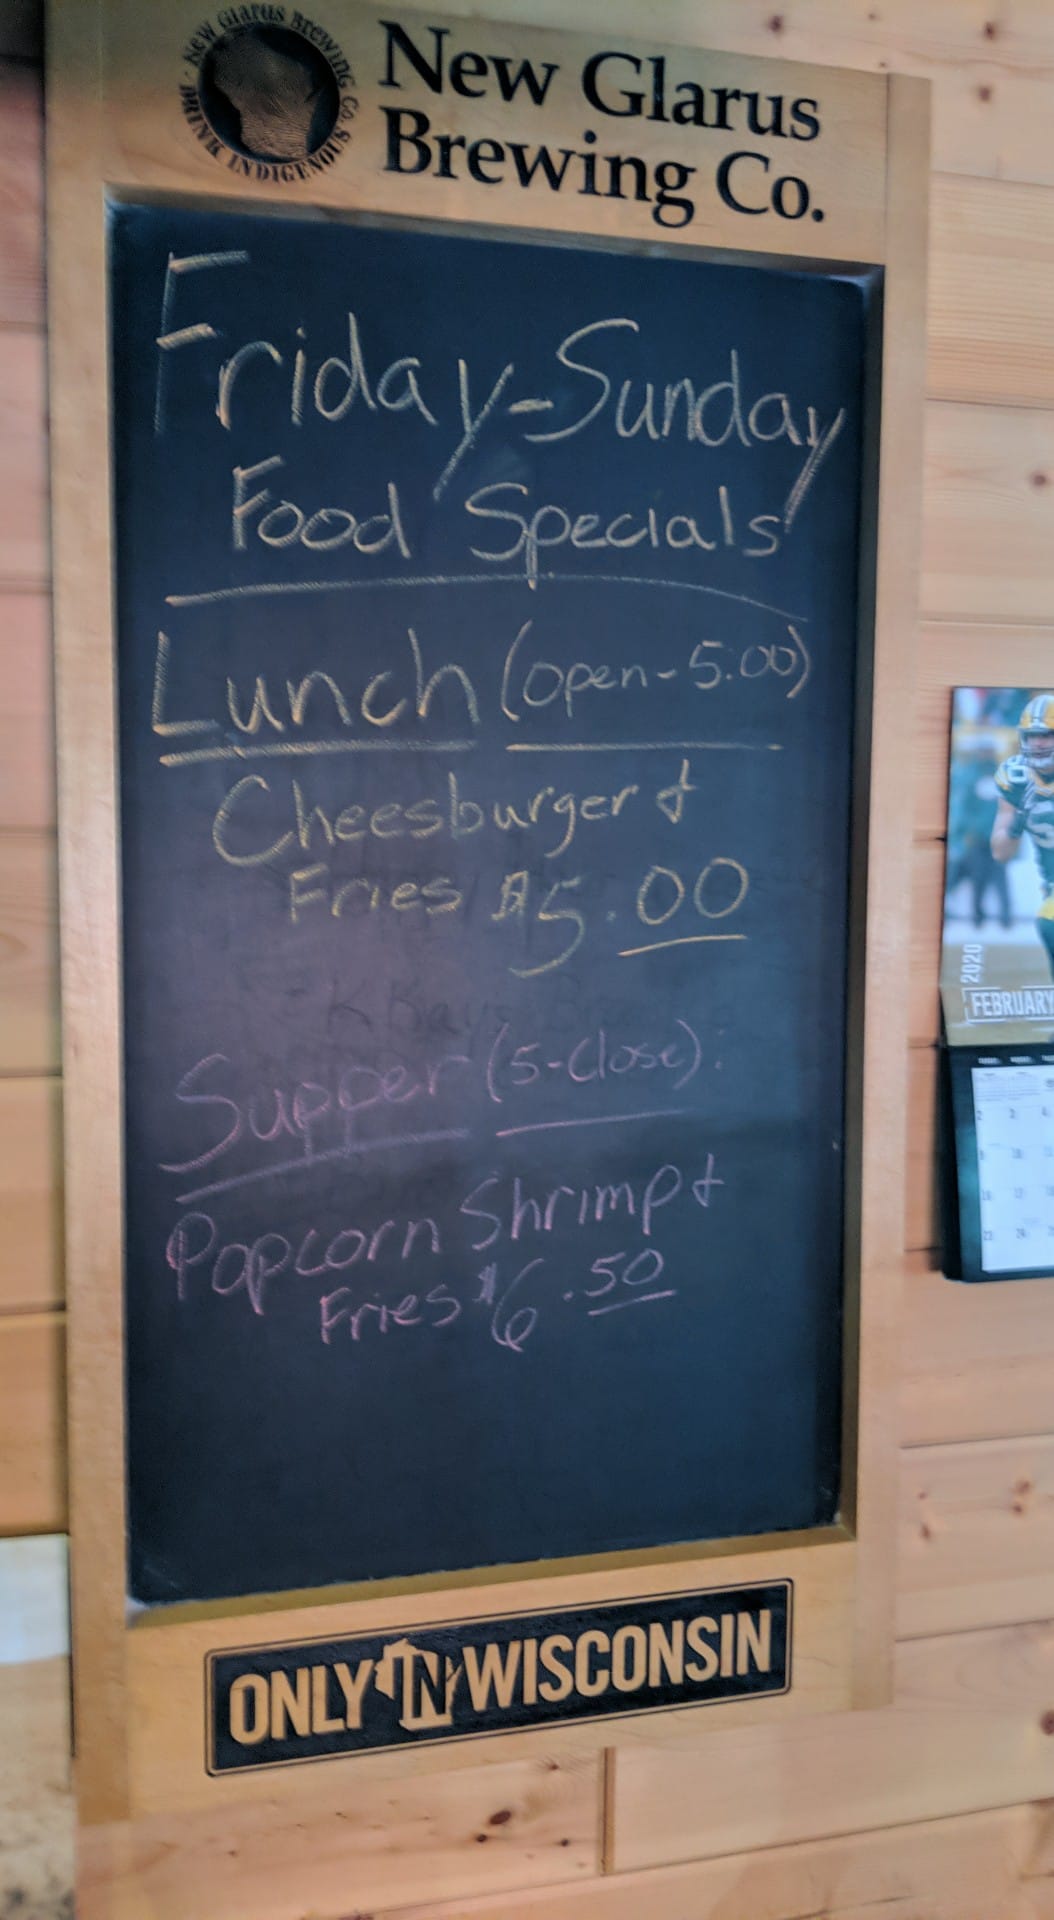 NEW GLARUS BREWING CO.
DRINK INDIGENOUS
New Glarus
Brewing Co.
Friday-Sunday
Food Specials
Lunch (open-5:00)
Cheesburger &
Fries $5.00
Supper (5-Close):
Popcorn Shrimp &
Fries $6.50
ONLY IN WISCONSIN
2020
FEBRUARY
2 3 4
9 10
16 17
23 24